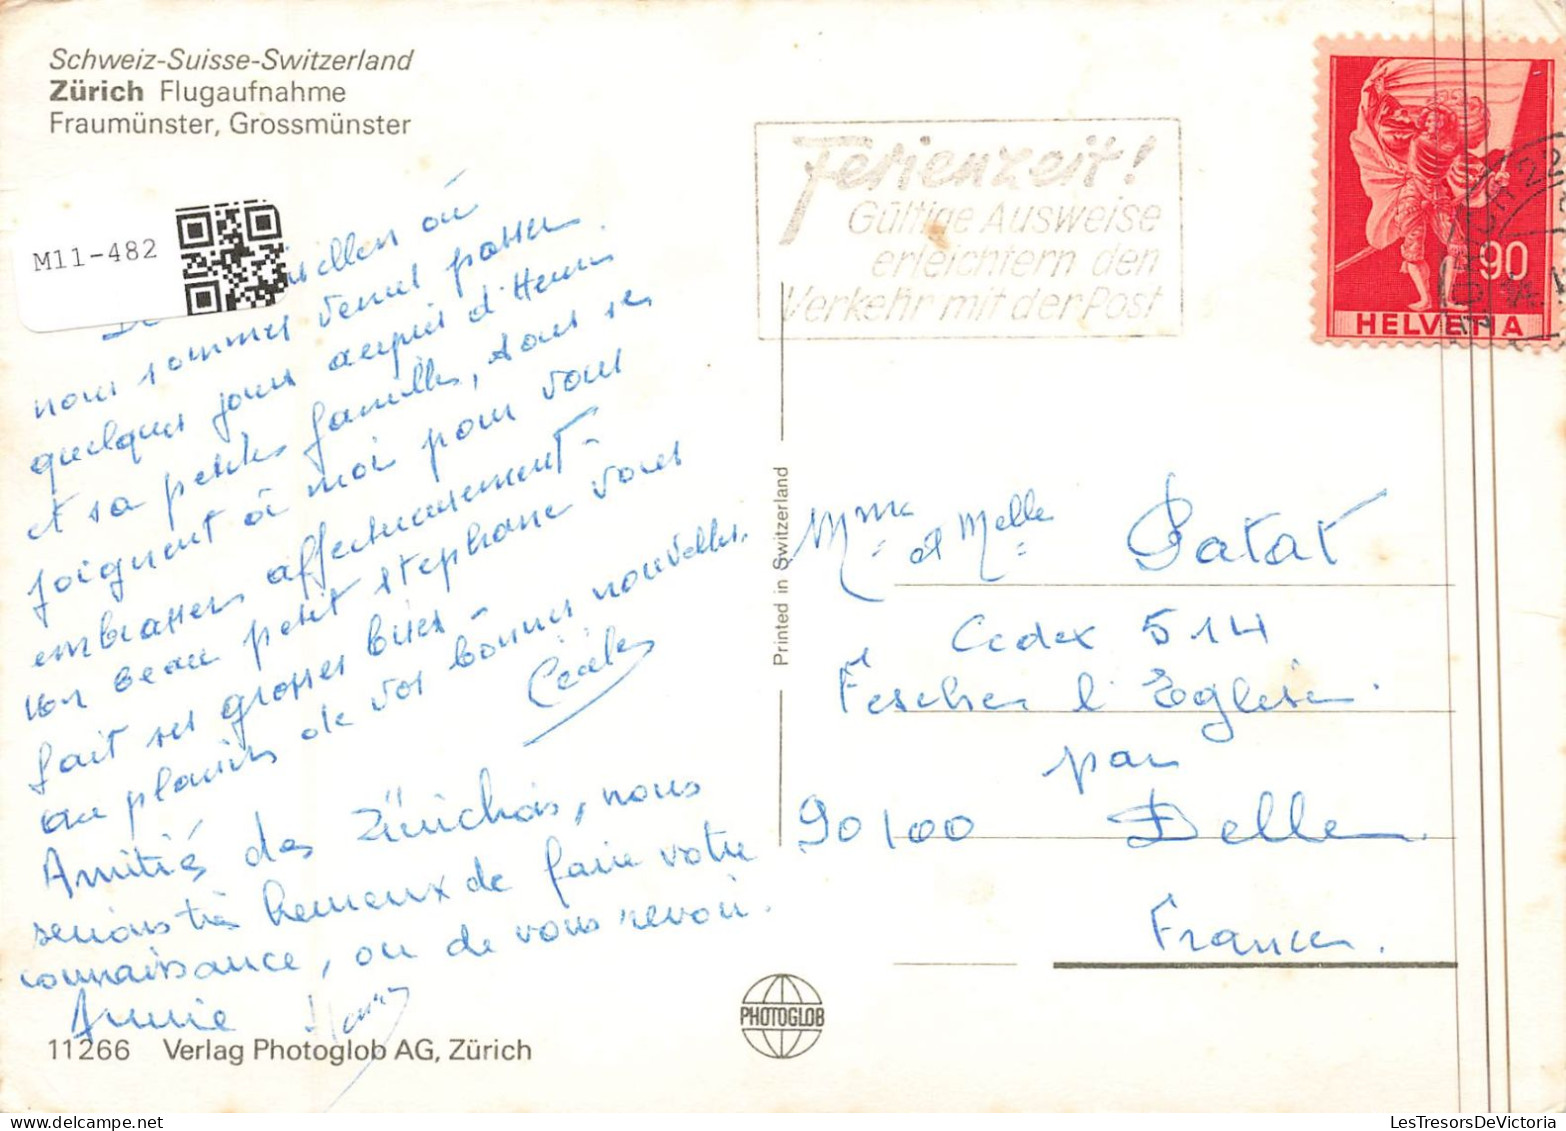 Schweiz-Suisse-Switzerland
Zürich Flugaufnahme
Fraumünster, Grossmünster
M11-482
Ferienzeit!
Gültige Ausweise
erleichtern den
Verkehr mit der Post
90
HELVETIA
où
nous sommes venus passer
quelques jours auprès d'Henri
et sa petite famille, tous se
joignent à moi pour vous
embrasser affectueusement -
beau petit stephane vous
fait ses grosses bises -
au plaisir de vos bonnes nouvelles.
Cécile
Amitiés des Zürichois, nous
serions très heureux de faire votre
connaissance, ou de vous revoir.
Annie Henri
Printed in Switzerland
Mme et Melle Patat
Cedex 514
Fesches l'Eglise.
par
90100 Delle
France.
PHOTOGLOB
11266 Verlag Photoglob AG, Zürich
LesTresorsDeVictoria